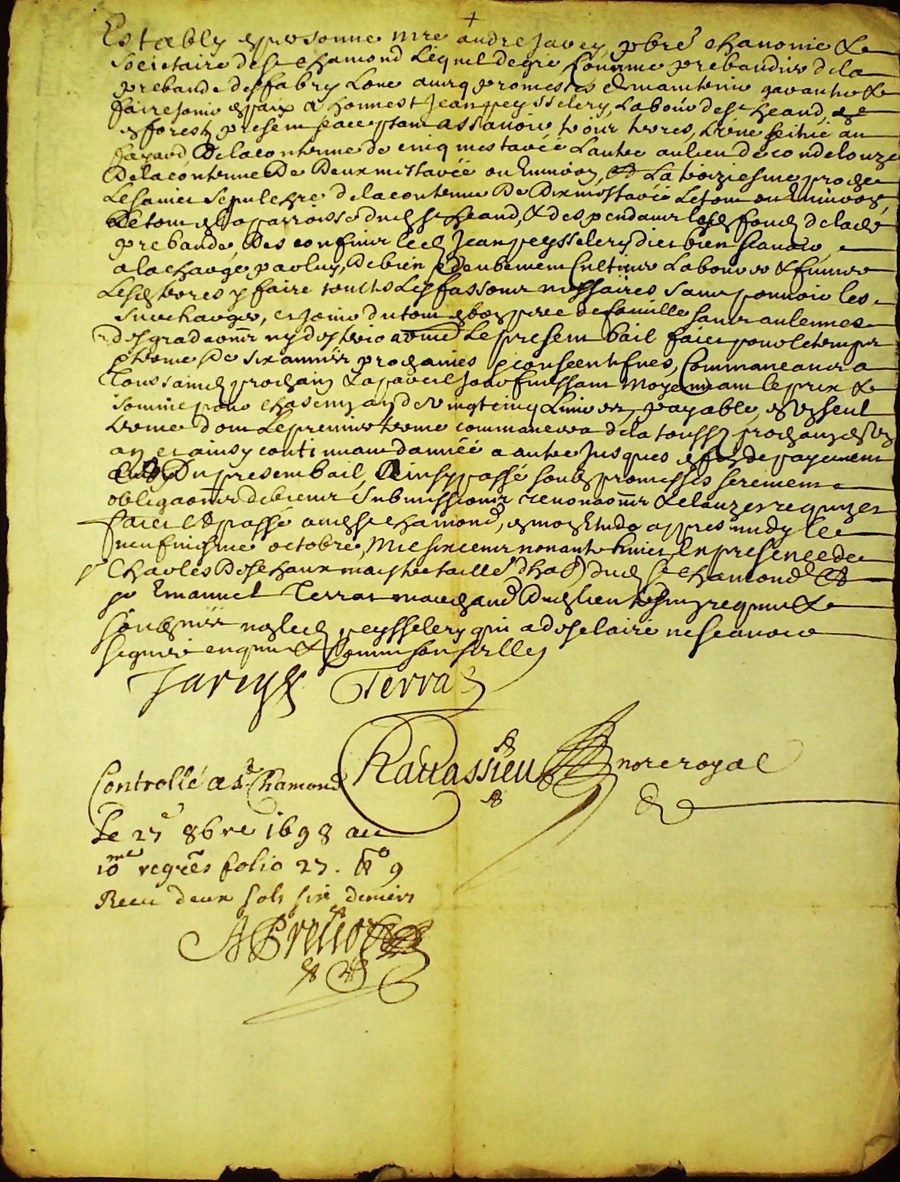 Estably en personne mre andre Javey pbre chanoine &
societaire de st chamond lequel de gré comme prebandier de la
prebande des fabry loue avecq promesses de maintenir garantir &
faire jouir en paix a honnest Jean peyssellery, laboür de st heand, en
forests present & acceptant assavoir trois terres, l'une scitué au
de la contenue de cinq mestarée l'autre au lieu de condelouze
de la contenue de deux mestarée ou environ, & la troiziesme proche
le saint sepulchre de la contenue de dix mestarée le tout ou environ,
le tout en la parroisse dud st heand, & despendant des fonds de lad
prebande des confins led Jean peyssellery dit bien scavoir,
a la charge par luy, de bien & deubement cultiver labourer & fumer
lesd terres y faire touttes les fassons nessaires sans pouvoir les
surcharger, et jouir du tout en bon pere de famille sans aulcunes
desgradaonns ny le present bail fait pour le temps
& terme de six années prochaines & consecutifves, commanceant a
Toussainctz prochain & a pareil jour finissant moyennant le prix &
somme pour chascung an de vingt cinq livres, payable en ung seul
terme dont le premier terme commancera de la toussts prochain en ung
an et ainsy continuant d'année a autre jusques a fin de payement
du present bail, Ainsy passé soubs promesses serement
obligaonns de biens submissions renonaonns & clauzes requizes
faict & passé aud st chamond, en mon Etude appres midy le
neufviesme octobre, mil six cent nonante huict En presence de
Charles Deschaux maistre tailleur d'ha dud st chamond &
sr Emanuel Terras marchand dud lieu tesmgs requis &
soubsnés non led peyssellery qui a desclairé ne scavoir
signer enquis & somme
Javey Terras
Rattassieu nore royal
Controllé a St Chamond
Le 27e 8bre 1698 au
10me regres folio 27. No 9
Receu deux sols six deniers